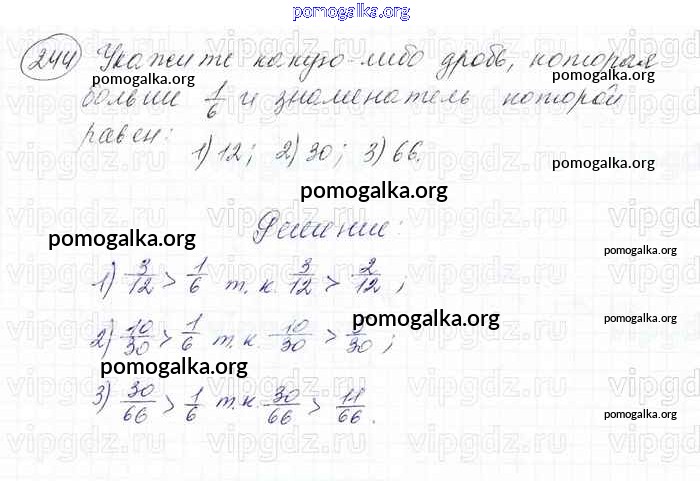 pomogalka.org
244 Укажите какую-либо дробь, которая
pomogalka.org
pomogalka.org
больше 1/6 и знаменатель которой
равен: 1) 12; 2) 30; 3) 66.
pomogalka.org
pomogalka.org
Решение:
pomogalka.org
pomogalka.org
1) 3/12 > 1/6 т.к. 3/12 > 2/12;
pomogalka.org
2) 10/30 > 1/6 т.к. 10/30 > 5/30;
pomogalka.org
pomogalka.org
3) 30/66 > 1/6 т.к. 30/66 > 11/66.
pomogalka.org
vipgdz.ru